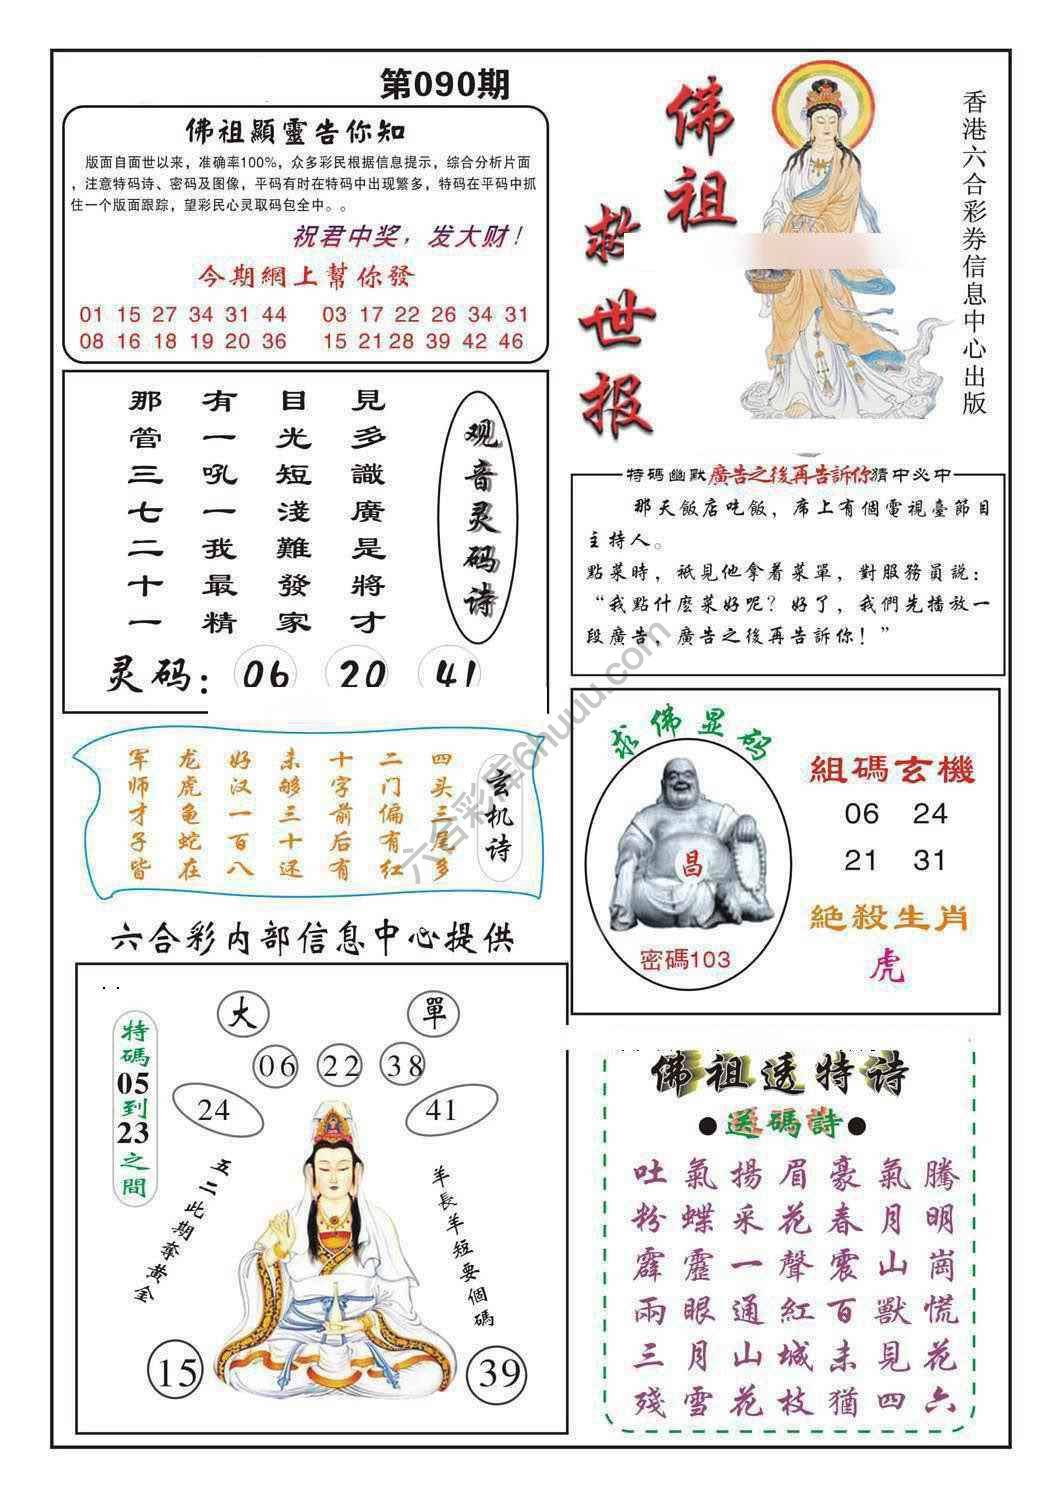 第090期
佛祖顯靈告你知
版面自面世以来，准确率100%，众多彩民根据信息提示，综合分析片面
，注意特码诗、密码及图像，平码有时在特码中出现繁多，特码在平码中抓
住一个版面跟踪，望彩民心灵取码包全中。。
祝君中奖，发大财！
今期網上幫你發
01 15 27 34 31 44 03 17 22 26 34 31
08 16 18 19 20 36 15 21 28 39 42 46
佛祖
救世报
香港六合彩券信息中心出版
見多識廣是將才
目光短淺難發家
有一吼一我最精
那管三七二十一
观音灵码诗
灵码：06 20 41
特碼幽默廣告之後再告訴你猜中必中
那天飯店吃飯，席上有個電視臺節目
主持人。
點菜時，祇見他拿着菜單，對服務員説：
“我點什麽菜好呢？好了，我們先播放一
段廣告，廣告之後再告訴你！”
玄机诗
四头三尾多
二门偏有红
十字前后有
未够三十还
好汉一百八
龙虎龟蛇在
军师才子皆
求佛显码
昌
密碼103
組碼玄機
06 24
21 31
絶殺生肖
虎
六合彩内部信息中心提供
大 單
06 22 38
24 41
特碼05到23之間
五二此期奪黄金
羊長羊短要個碼
15 39
佛祖透特诗
●送碼詩●
吐氣揚眉豪氣騰
粉蝶采花春月明
霹靂一聲震山崗
兩眼通紅百獸慌
三月山城未見花
殘雪花枝猶四六
六合彩库6huuu.com